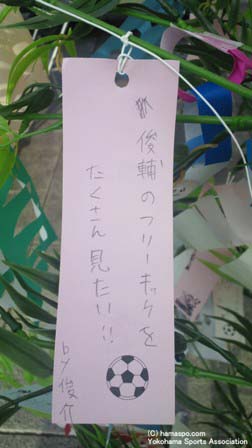 俊輔のフリーキックを
たくさん見たい!!
by 俊介
(C) hamaspo.com
Yokohama Sports Association